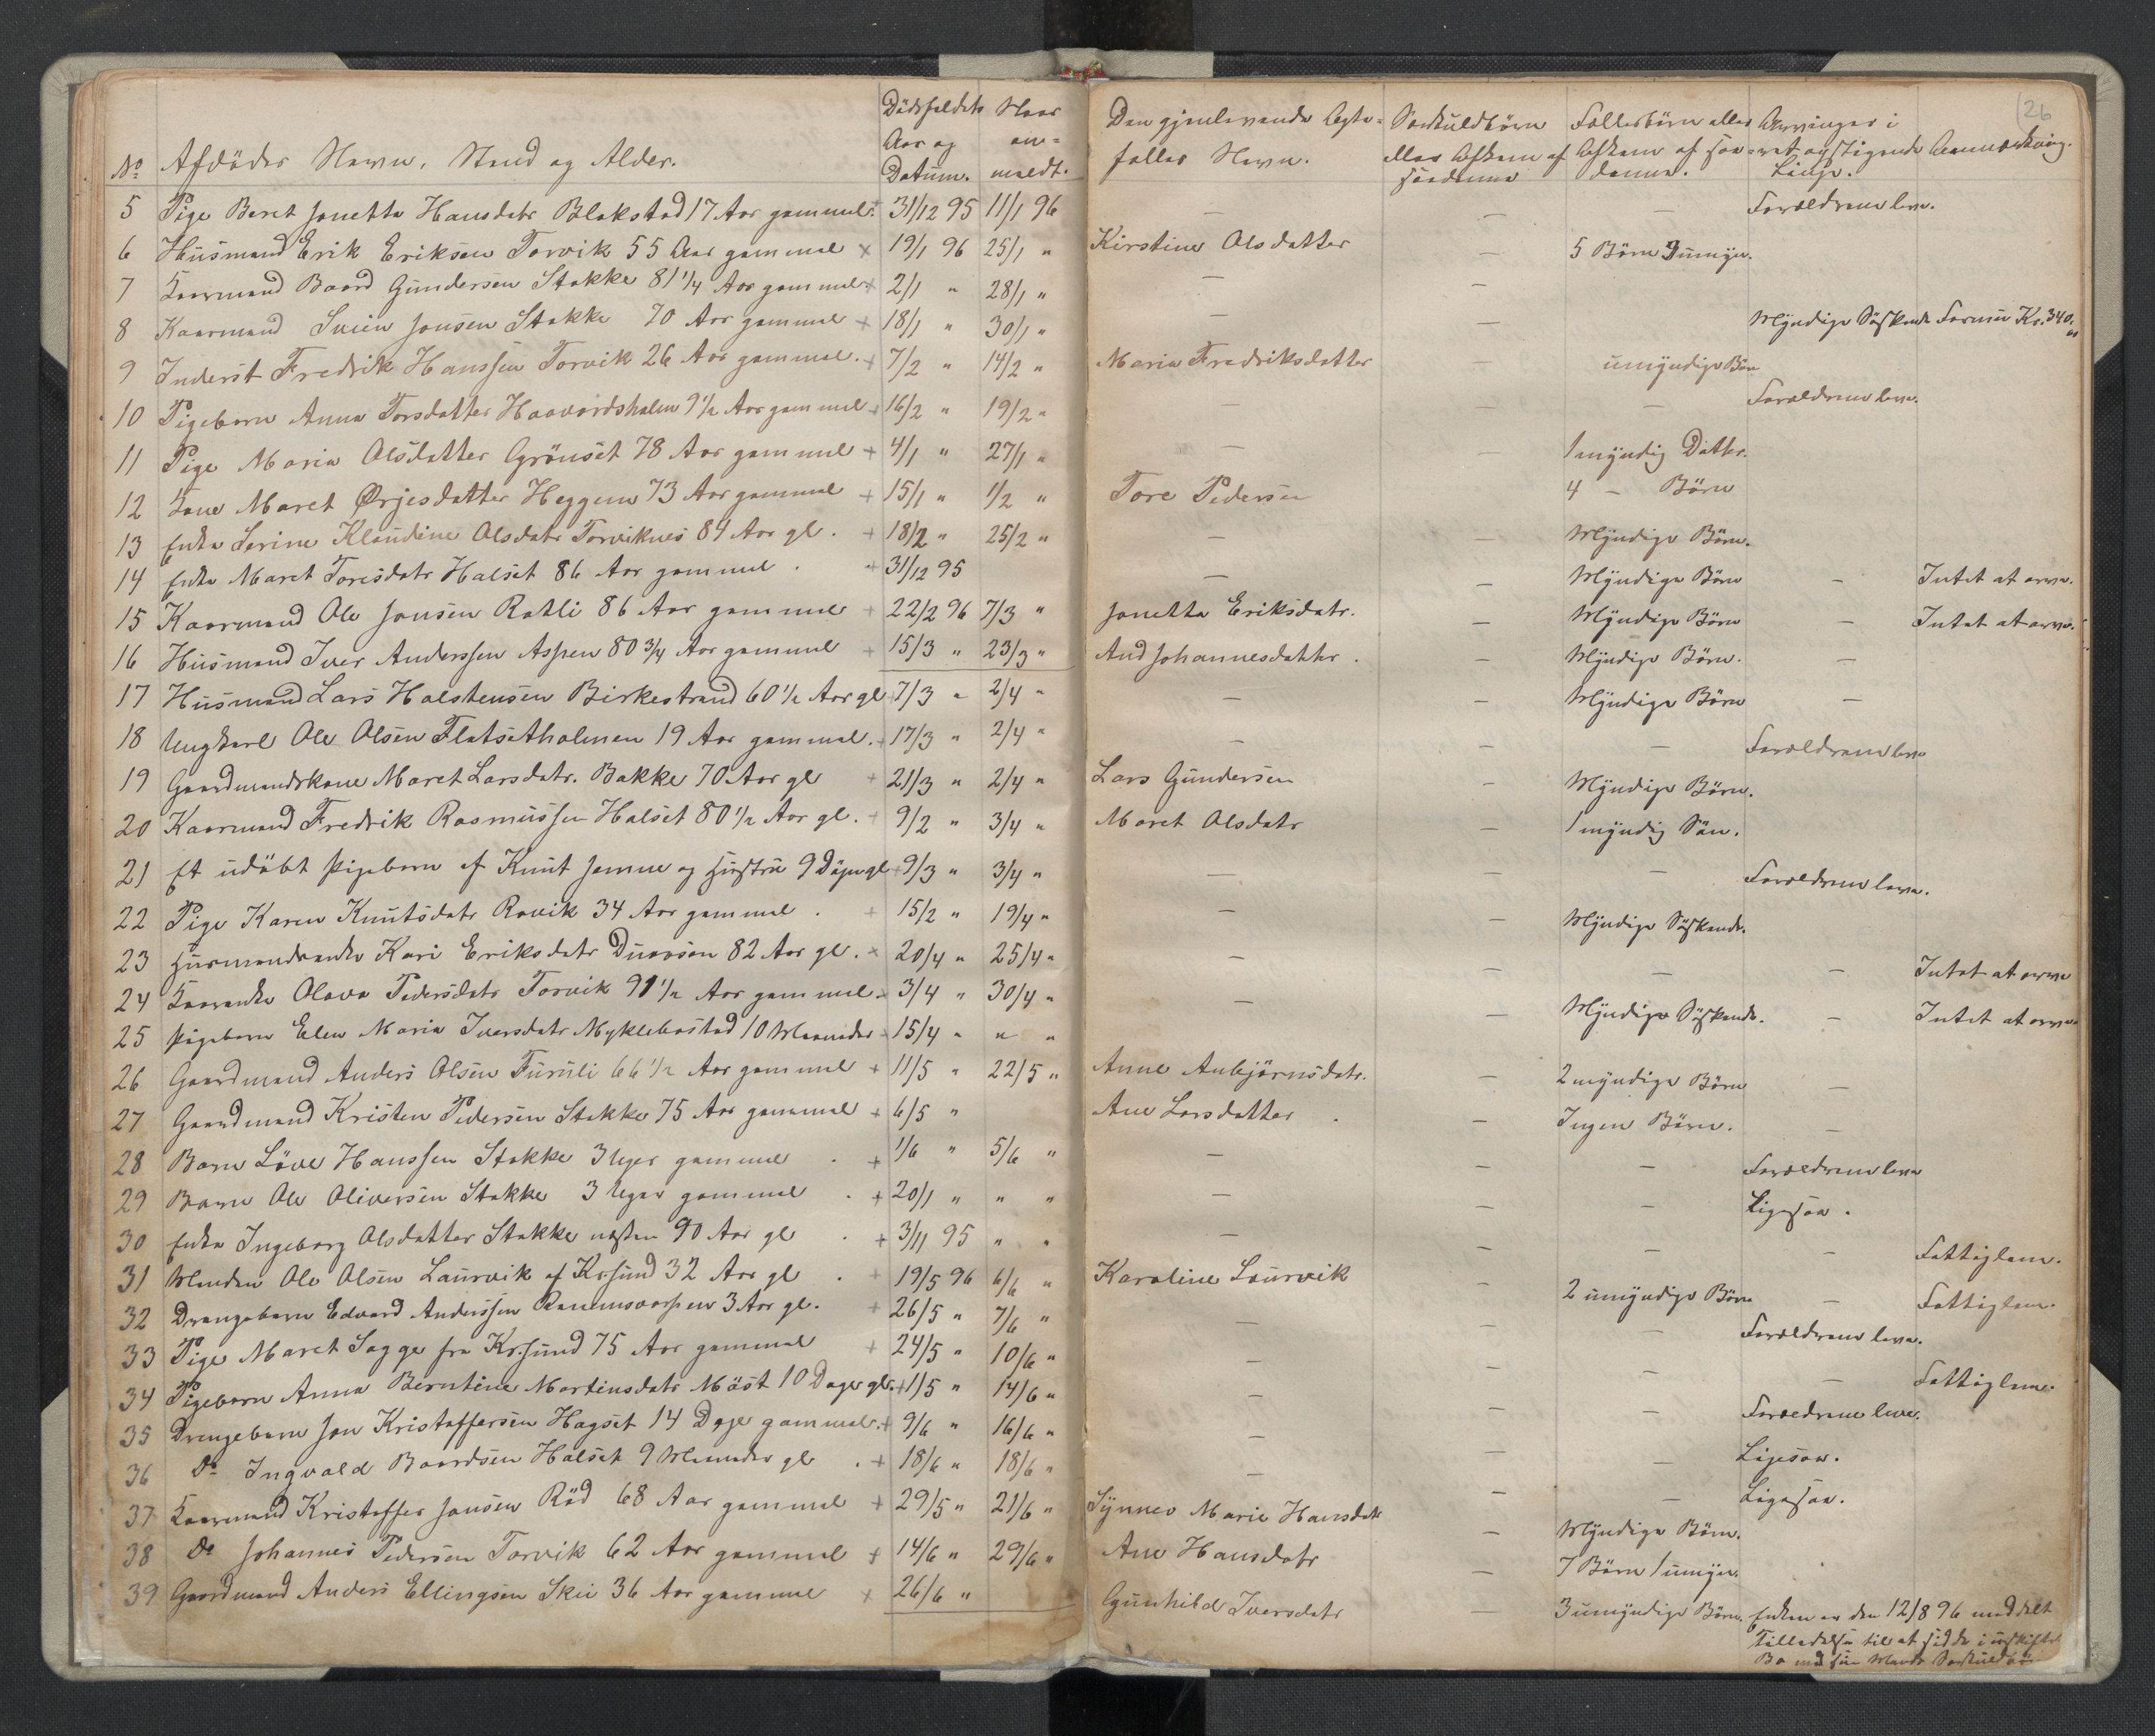 26
No Afdødes Navn, Stand og Alder. Dødsfaldets Aar og Datum. Naar anmeldt. Den gjenlevende Ægtefælles Navn. Særkuldbørn eller Afkom af saadanne Fællesbørn eller Afkom af saadanne. Arvinger i ret opstigende Linje. Anmærkning.
5 Pige Beret Jonetta Hansdatr Blakstad 17 Aar gammel + 31/12 95 11/1 96 — — — Forældrene leve.
6 Husmand Erik Eriksen Torvik 55 Aar gammel + 19/1 96 25/1 " Kirstine Olsdatter — 5 Børn 3 umyn.
7 Kaarmand Baard Gundersen Stokke 81 1/4 Aar gammel + 2/1 " 28/1 " — —
8 Kaarmand Svein Jonsen Stokke 70 Aar gammel + 18/1 " 30/1 " — — Myndige Søskende Formue Kr. 340.
9 Inderst Fredrik Hanssen Torvik 26 Aar gammel. + 7/2 " 14/2 " Maria Fredriksdatter — umyndige Børn
10 Pigebarn Anna Torsdatter Haavardsholm 9 1/2 Aar gammel + 16/2 " 19/2 " — — — Forældrene leve.
11 Pige Maria Olsdatter Grønset 78 Aar gammel + 4/1 " 27/1 " — — 1 myndig Datter.
12 Kone Maret Ørjesdatter Heggem 73 Aar gammel + 15/1 " 1/2 " Tore Pedersen 4 — Børn
13 Enke Serine Klaudine Olsdatr Torviknes 84 Aar gl. + 18/2 " 25/2 " — — Myndige Børn.
14 Enke Maret Toresdatr Halset 86 Aar gammel. + 31/12 95 — — Myndige Børn — Intet at arve.
15 Kaarmand Ole Jonsen Rotli 86 Aar gammel + 22/2 96 7/3 " Jonetta Eriksdatr. — Myndige Børn — Intet at arve.
16 Husmand Iver Anderssen Aspen 80 3/4 Aar gammel + 15/3 " 23/3 " And Johannesdatter. — Myndige Børn. —
17 Husmand Lars Halstensen Birkestrand 60 1/2 Aar gl + 7/3 " 2/4 " — — Myndige Børn —
18 Ungkarl Ole Olsen Flatsetholmen 19 Aar gammel. + 17/3 " 2/4 " — — — Forældrene leve
19 Gaardmandskone Maret Larsdatr. Bakke 70 Aar gl + 21/3 " 2/4 " Lars Gundersen — Myndige Børn.
20 Kaarmand Fredrik Rasmussen Halset 80 1/2 Aar gl. + 9/2 " 3/4 " Maret Olsdatr — 1 myndig Søn.
21 Et udøbt Pigebarn af Knut og Hustru 9 Døgn gl + 9/3 " 3/4 " — — — Forældrene leve.
22 Pige Karen Knutsdatr Ravik 34 Aar gammel. + 15/2 " 19/4 " — — Myndige Søskende.
23 Husmandsenke Kari Eriksdatr 82 Aar gl. + 20/4 " 25/4 " — — — — Intet at arve
24 Kaarenke Olava Pedersdatr Torvik 91 1/2 Aar gammel + 3/4 " 30/4 " — — Myndige Søskende. — Intet at arve.
25 Pigebarn Elen Maria Iversdatr Myklebostad 10 Maaneder 15/4 " " "
26 Gaardmand Anders Olsen Furuli 66 1/2 Aar gammel + 11/5 " 22/5 " Anne Anbjørnsdatr. — 2 myndige Børn —
27 Gaardmand Kristen Pedersen Stokke 75 Aar gammel + 6/5 " Ane Larsdatter. — Ingen Børn. —
28 Barn Løve Hanssen Stokke 3 Uger gammel . + 1/6 " 5/6 " — — — Forældrene leve
29 Barn Ole Oliversen Stokke 3 Uger gammel . + 20/1 " " " — — — Ligesaa.
30 Enke Ingeborg Olsdatter Stokke næsten 90 Aar gl . + 3/11 95 " " — — — — Fattiglem.
31 Manden Ole Olsen Laurvik af Kr.sund 32 Aar gl . + 19/5 96 6/6 " Karoline Laurvik — 2 umyndige Børn — Fattiglem.
32 Drengebarn Edvard Anderssen 3 Aar gl. + 26/5 " 7/6 " — — — Forældrene leve.
33 Pige Maret Sogge fra Kr.sund 75 Aar gammel + 24/5 " 10/6 " — — — Fattiglem.
34 Pigebarn Anna Berntine Martinsdatr Møst 10 Dage gl. + 1/5 " 14/6 " — — Forældrene leve.
35 Drengebarn Jon Kristoffersen Hagset 14 Dage gammel. + 9/6 " 16/6 " — — — Ligesaa.
36 Do Ingvald Baardsen Halset 9 Maaneder gl . + 18/6 " 18/6 " — — — Ligesaa.
37 Kaarmand Kristoffer Jonsen Rød 68 Aar gammel + 29/5 " 21/6 " Synnev Marie Hansdatr — Myndige Børn.
38 Do Johannes Pedersen Torvik 62 Aar gammel + 14/6 " 29/6 " Ane Hansdatr — 7 Børn 1 umyn.
39 Gaardmand Anders Ellingsen Skei 36 Aar gammel + 26/6 " Gunhild Iversdatr — 3 umyndige Børn. Enken er den 12/8 96 meddelt
Tilladelse til at sidde i uskiftet
Bo med sin Mands Særkuldbø